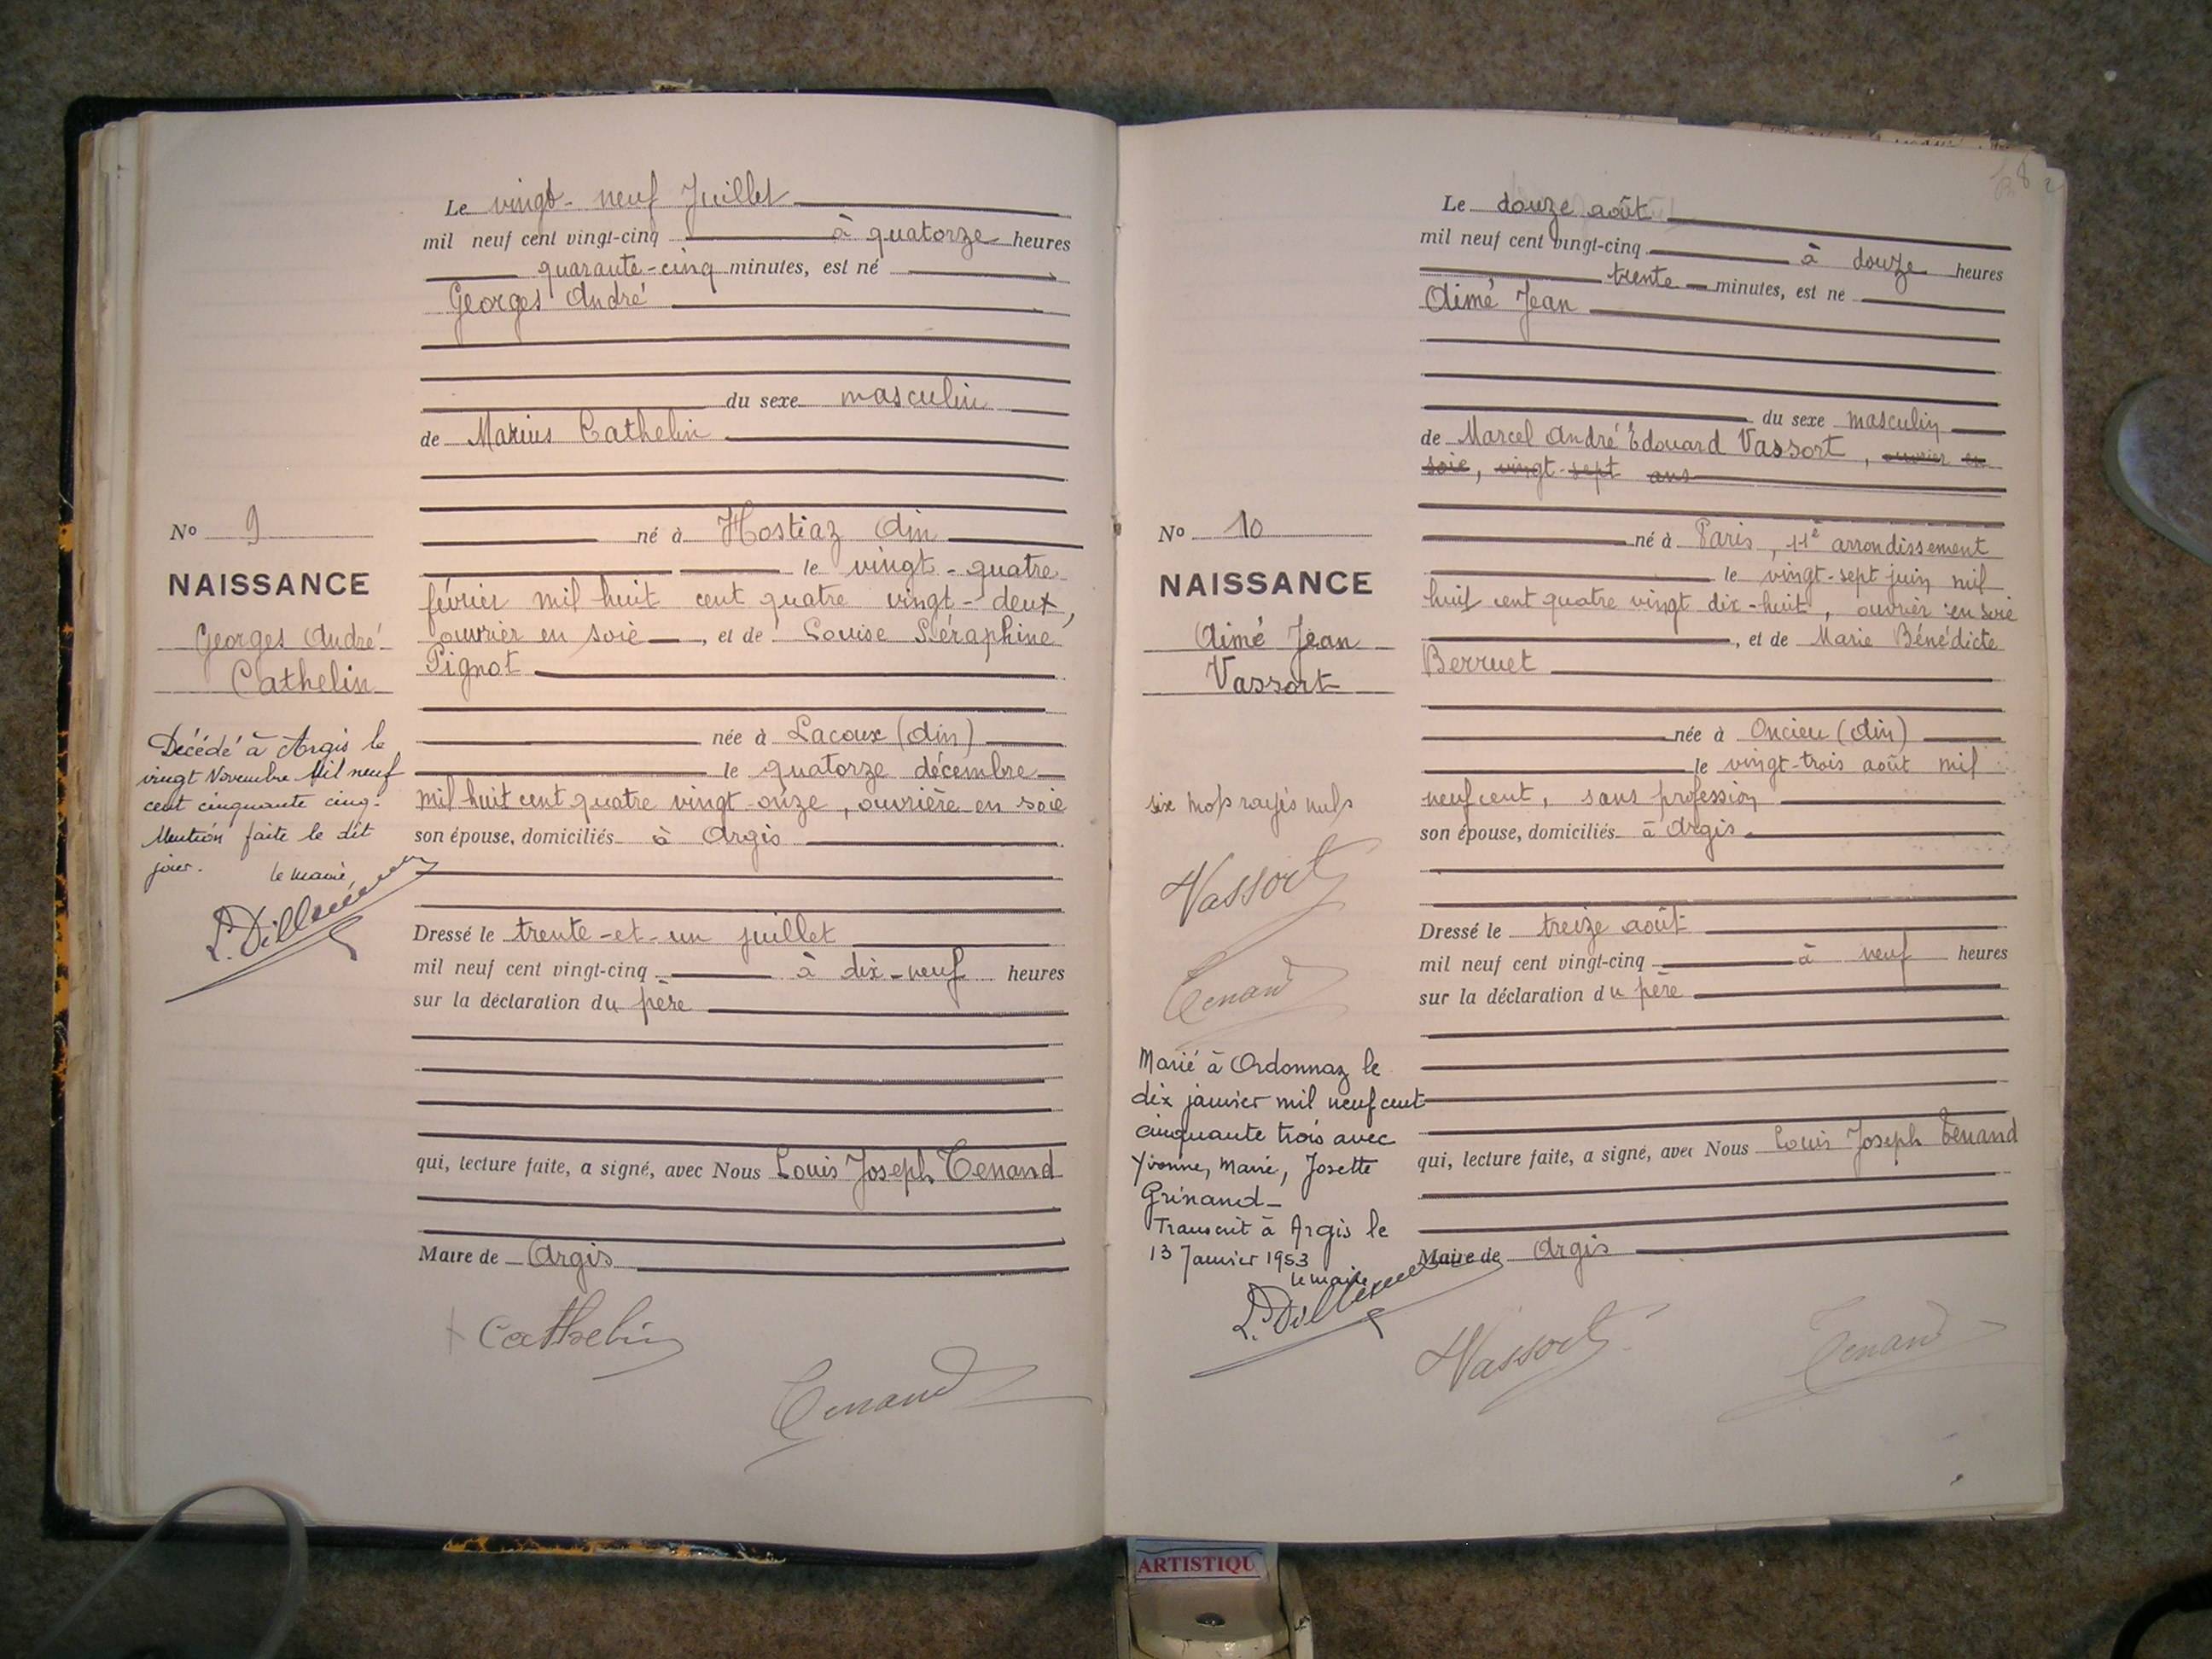 Le vingt-neuf Juillet
mil neuf cent vingt-cinq à quatorze heures
quarante-cinq minutes, est né
Georges André
du sexe masculin
de Marius Cathelin
né à Hostiaz Ain
le vingt-quatre
février mil huit cent quatre vingt-deux,
ouvrier en soie, et de Louise Séraphine
Pignot
née à Lacoux (Ain)
le quatorze décembre
mil huit cent quatre vingt onze, ouvrière en soie
son épouse, domiciliés à Argis
Dressé le trente-et-un juillet
mil neuf cent vingt-cinq à dix-neuf heures
sur la déclaration du père
qui, lecture faite, a signé, avec Nous Louis Joseph Tenand
Maire de Argis
Cathelin
Tenand
No 9
NAISSANCE
Georges André
Cathelin
Décédé à Argis le
vingt Novembre Mil neuf
cent cinquante cinq.
Mention faite le dit
jour. le maire,
Le douze août
mil neuf cent vingt-cinq à douze heures
trente minutes, est né
Aimé Jean
du sexe masculin
de Marcel André Edouard Vassort, ouvrier en
soie, vingt-sept ans
né à Paris, 11e arrondissement
le vingt-sept juin mil
huit cent quatre vingt dix-huit, ouvrier en soie
, et de Marie Bénédicte
Berruet
née à Oncieu (Ain)
le vingt-trois août mil
neuf cent, sans profession
son épouse, domiciliés à Argis
Dressé le treize août
mil neuf cent vingt-cinq à neuf heures
sur la déclaration du père
qui, lecture faite, a signé, avec Nous Louis Joseph Tenand
Maire de Argis
Vassort
Tenand
No 10
NAISSANCE
Aimé Jean
Vassort
six mots rayés nuls
Vassort
Tenand
Marié à Ordonnaz le
dix janvier mil neuf cent
cinquante trois avec
Yvonne, Marie, Josette
Grinand
Transcrit à Argis le
13 Janvier 1953
le maire
ARTISTIQU